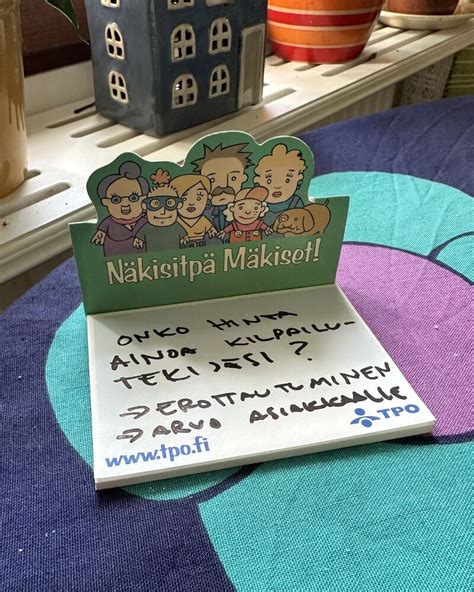 Näkisitpä Mäkiset!
ONKO HINTA
AINOA KILPAILU-
TEKIJÄSI?
→ EROTTAUTUMINEN
→ ARVO ASIAKKAALLE
TPO
www.tpo.fi